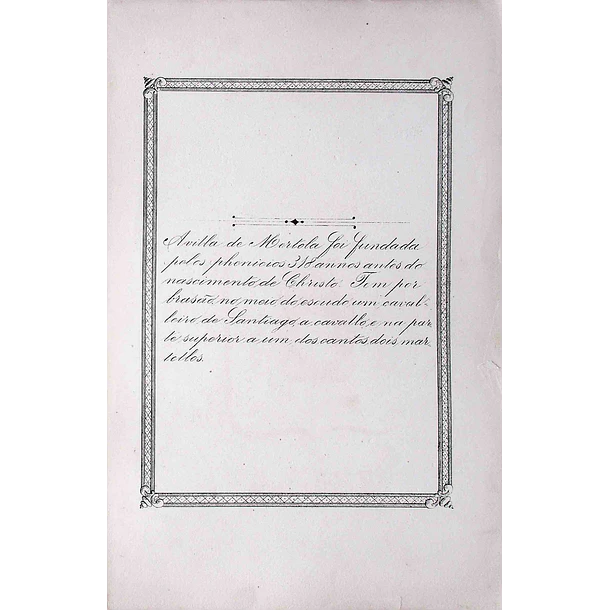 A villa de Mertola foi fundada
pelos phenicios 318 annos antes do
nascimento de Christo. Tem por
brasão, no meio do escudo um caval-
leiro de Santiago a cavallo, e na par
te superior a um dos cantos dois mar
tellos.